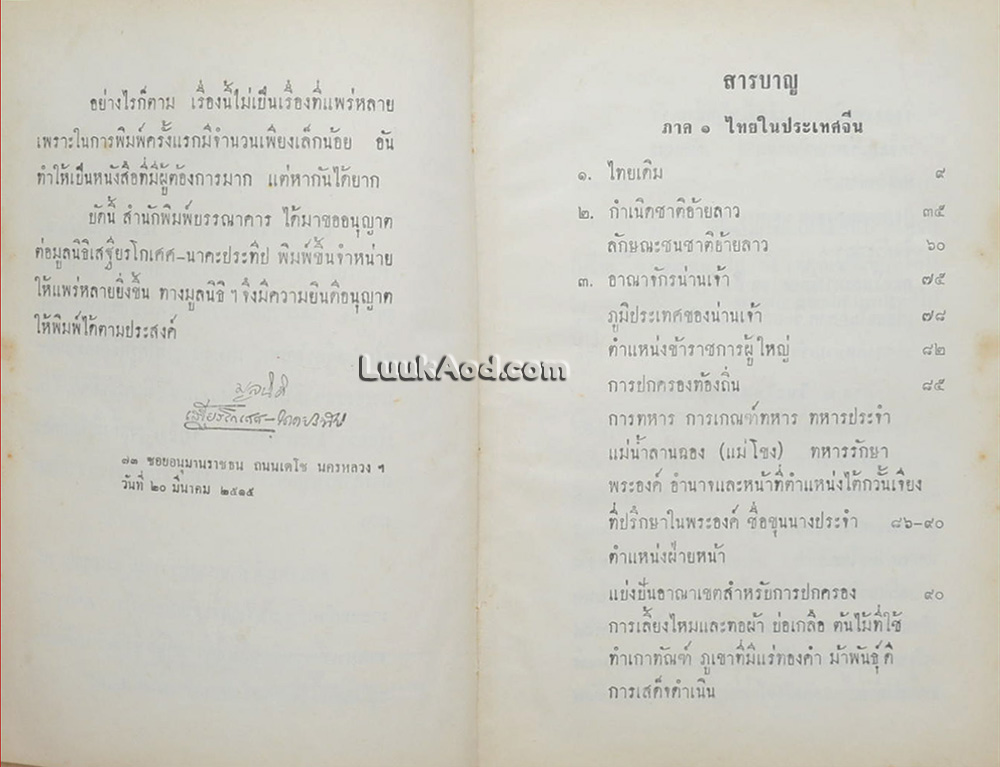 อย่างไรก็ตาม เรื่องนี้ไม่เป็นเรื่องที่แพร่หลาย
เพราะในการพิมพ์ครั้งแรกมีจำนวนเพียงเล็กน้อย อัน
ทำให้เป็นหนังสือที่มีผู้ต้องการมาก แต่หากันได้ยาก
บัดนี้ สำนักพิมพ์บรรณาคาร ได้มาขออนุญาต
ต่อมูลนิธิเสฐียรโกเศศ-นาคะประทีป พิมพ์ขึ้นจำหน่าย
ให้แพร่หลายยิ่งขึ้น ทางมูลนิธิ ฯ จึงมีความยินดีอนุญาต
ให้พิมพ์ได้ตามประสงค์
มูลนิธิ
เสฐียรโกเศศ-นาคะประทีป
๗๓ ซอยอนุมานราชธน ถนนเดโช นครหลวง ฯ
วันที่ ๒๐ มีนาคม ๒๕๑๕
สารบาญ
ภาค ๑ ไทยในประเทศจีน
๑. ไทยเดิม ๙
๒. กำเนิดชาติอ้ายลาว ๓๕
ลักษณะชนชาติอ้ายลาว ๖๐
๓. อาณาจักรน่านเจ้า ๗๕
ภูมิประเทศของน่านเจ้า ๗๘
ตำแหน่งข้าราชการผู้ใหญ่ ๘๒
การปกครองท้องถิ่น ๘๕
การทหาร การเกณฑ์ทหาร ทหารประจำ
แม่น้ำลานฉอง (แม่โขง) ทหารรักษา
พระองค์ อำนาจและหน้าที่ตำแหน่งไต้กวั้นเจียง
ที่ปรึกษาในพระองค์ ชื่อขุนนางประจำ ๘๖-๙๐
ตำแหน่งฝ่ายหน้า
แบ่งปันอาณาเขตสำหรับการปกครอง ๙๐
การเลี้ยงไหมและทอผ้า บ่อเกลือ ต้นไม้ที่ใช้
ทำเกาทัณฑ์ ภูเขาที่มีแร่ทองคำ ม้าพันธุ์ดี
การเสด็จดำเนิน
LuukAod.com